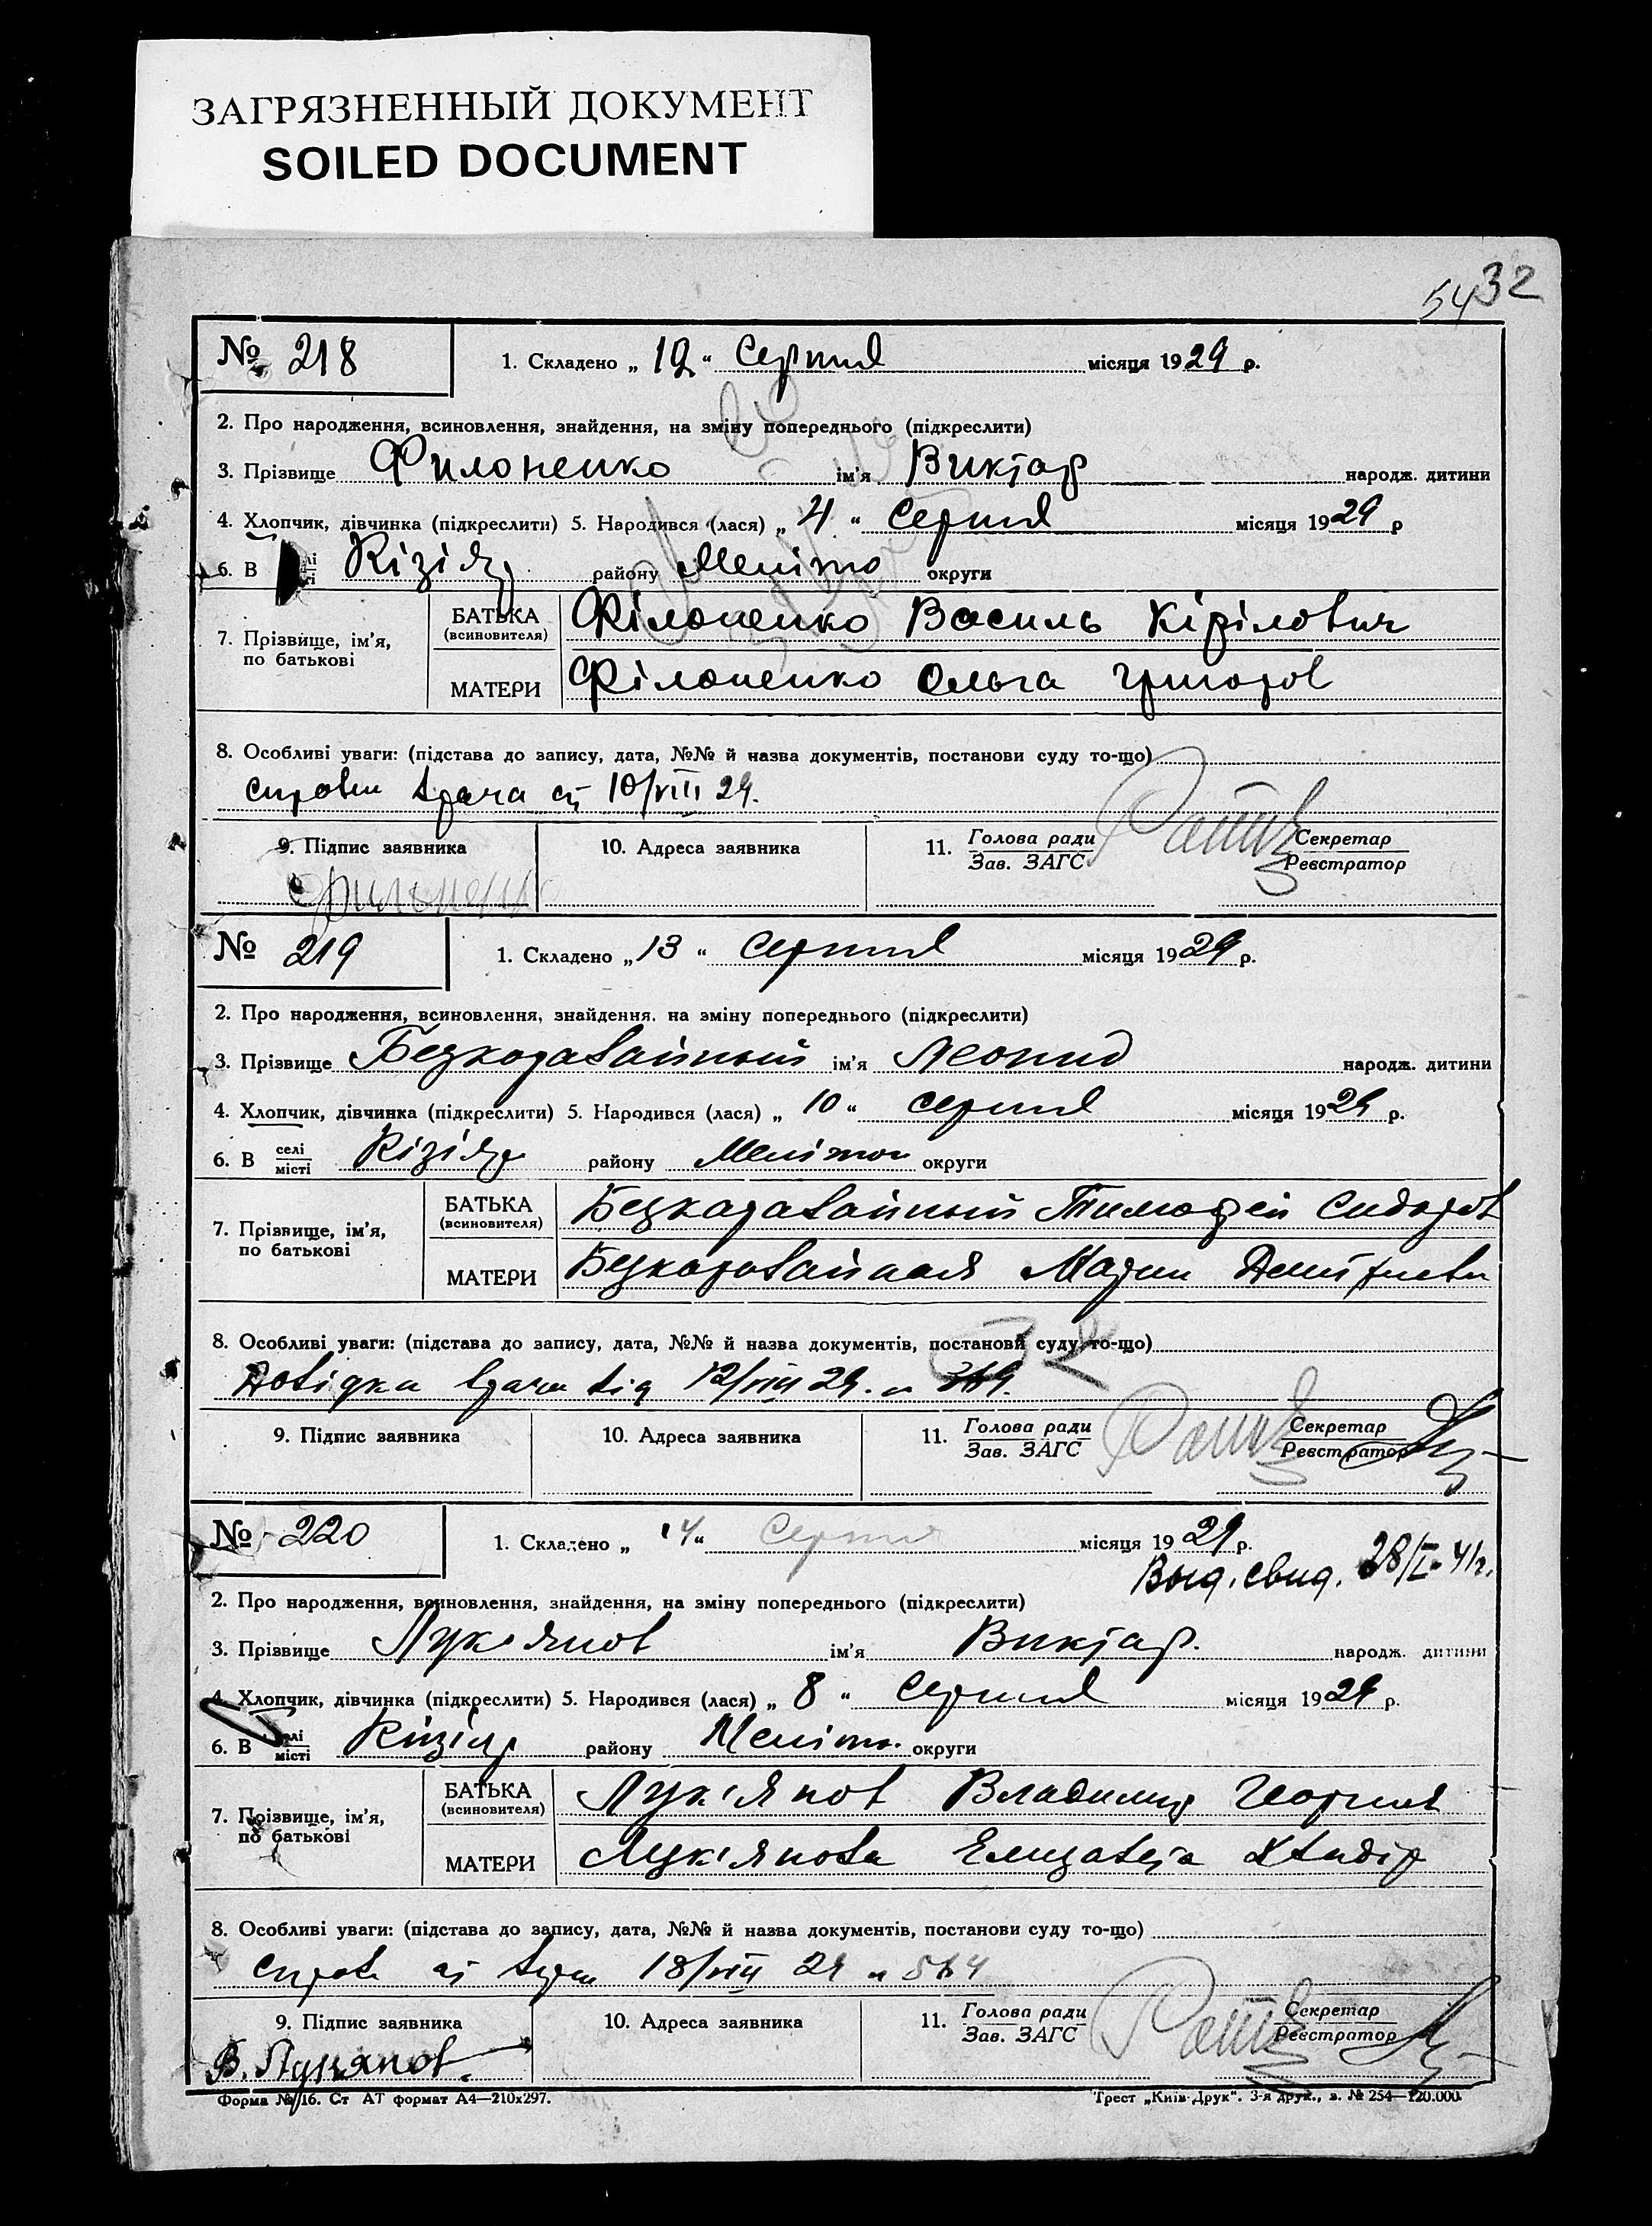 ЗАГРЯЗНЕННЫЙ ДОКУМЕНТ
SOILED DOCUMENT
54 32
№ 218 1. Складено „ 12 “ Серпня місяця 1929 р.
2. Про народження, всиновлення, знайдення, на зміну попереднього (підкреслити)
3. Прізвище Филоненко ім'я Виктор народж. дитини
4. Хлопчик, дівчинка (підкреслити) 5. Народився (лася) „ 4 “ Серпня місяця 1929 р
6. В Кізіяр району Меліто округи
БАТЬКА Філоненко Василь Кірілович
7. Прізвище, ім'я, (всиновителя)
по батькові
МАТЕРИ Філоненко Ольга Григоров
8. Особливі уваги: (підстава до запису, дата, №№ й назва документів, постанови суду то-що)
10/VIII 29.
9. Підпис заявника 10. Адреса заявника 11. Голова ради Секретар
Зав. ЗАГС Реєстратор
№ 219 1. Складено „ 13 “ Серпня місяця 1929 р.
2. Про народження, всиновлення, знайдення, на зміну попереднього (підкреслити)
3. Прізвище Безкоровайный ім'я Леонид народж. дитини
4. Хлопчик, дівчинка (підкреслити) 5. Народився (лася) „ 10 “ серпня місяця 1929 р.
6. В селі Кізіяр району Меліто округи
місті
БАТЬКА Безкоровайный Тимофей Сидоров
7. Прізвище, ім'я, (всиновителя)
по батькові
МАТЕРИ Безкоровайная Мария Дмитриевн
8. Особливі уваги: (підстава до запису, дата, №№ й назва документів, постанови суду то-що)
Довідка врача від 12/VIII 29.
9. Підпис заявника 10. Адреса заявника 11. Голова ради Секретар
Зав. ЗАГС Реєстратор
№ 220 1. Складено „ 14 “ Серпня місяця 1929 р.
Выд. свид. 28/I-41г.
2. Про народження, всиновлення, знайдення, на зміну попереднього (підкреслити)
3. Прізвище Лук'янов ім'я Виктор. народж. дитини
4. Хлопчик, дівчинка (підкреслити) 5. Народився (лася) „ 8 “ Серпня місяця 1929 р.
6. В селі Кізіяр району Меліто. округи
місті
БАТЬКА Лук'янов Владимир Георгиев
7. Прізвище, ім'я, (всиновителя)
по батькові
МАТЕРИ Лук'янова Елизавета
8. Особливі уваги: (підстава до запису, дата, №№ й назва документів, постанови суду то-що)
13/VIII 29
9. Підпис заявника 10. Адреса заявника 11. Голова ради Секретар
Зав. ЗАГС Реєстратор
В. Лукянов.
Форма № 16. Ст АТ формат А4—210х297. Трест „Київ-Друк“. 3-я друк., з. № 254—120.000.